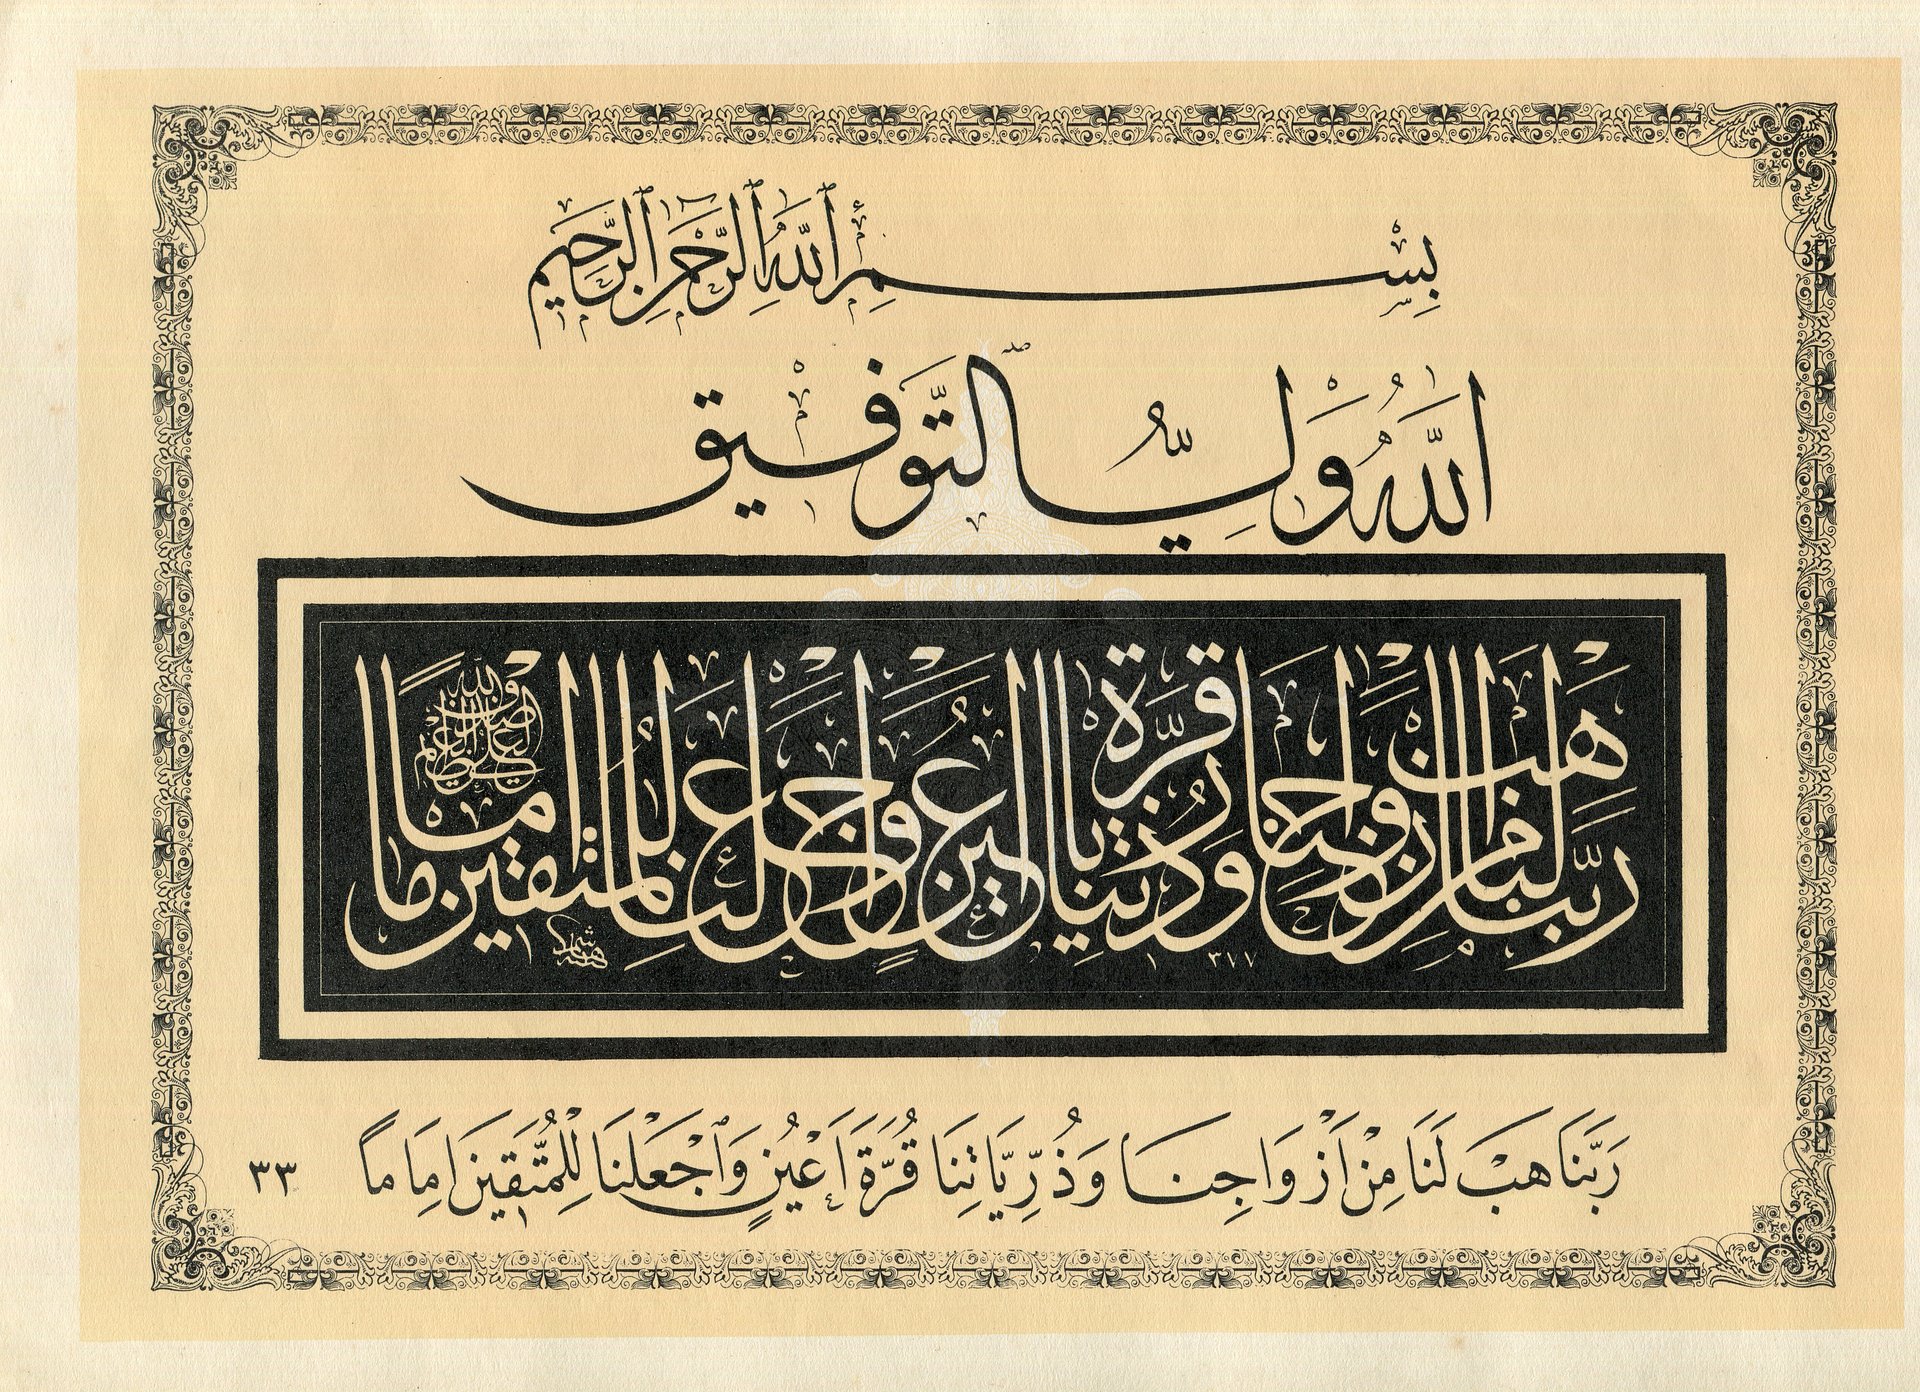 بِسْمِ ٱللَّهِ ٱلرَّحْمَنِ ٱلرَّحِيمِ
اَللَّهُ وَلِيُّ التَّوْفِيقِ
رَبَّنَا هَبْ لَنَا مِنْ اَزْوَاجِنَا وَذُرِّيَّاتِنَا قُرَّةَ اَعْيُنٍ وَاجْعَلْنَا لِلْمُتَّقِينَ اِمَامًا
صدق الله العلي العظيم
رَبَّنَا هَبْ لَنَا مِنْ اَزْوَاجِنَا وَذُرِّيَّاتِنَا قُرَّةَ اَعْيُنٍ وَٱجْعَلْنَا لِلْمُتَّقِينَ اِمَامًا ٣٣